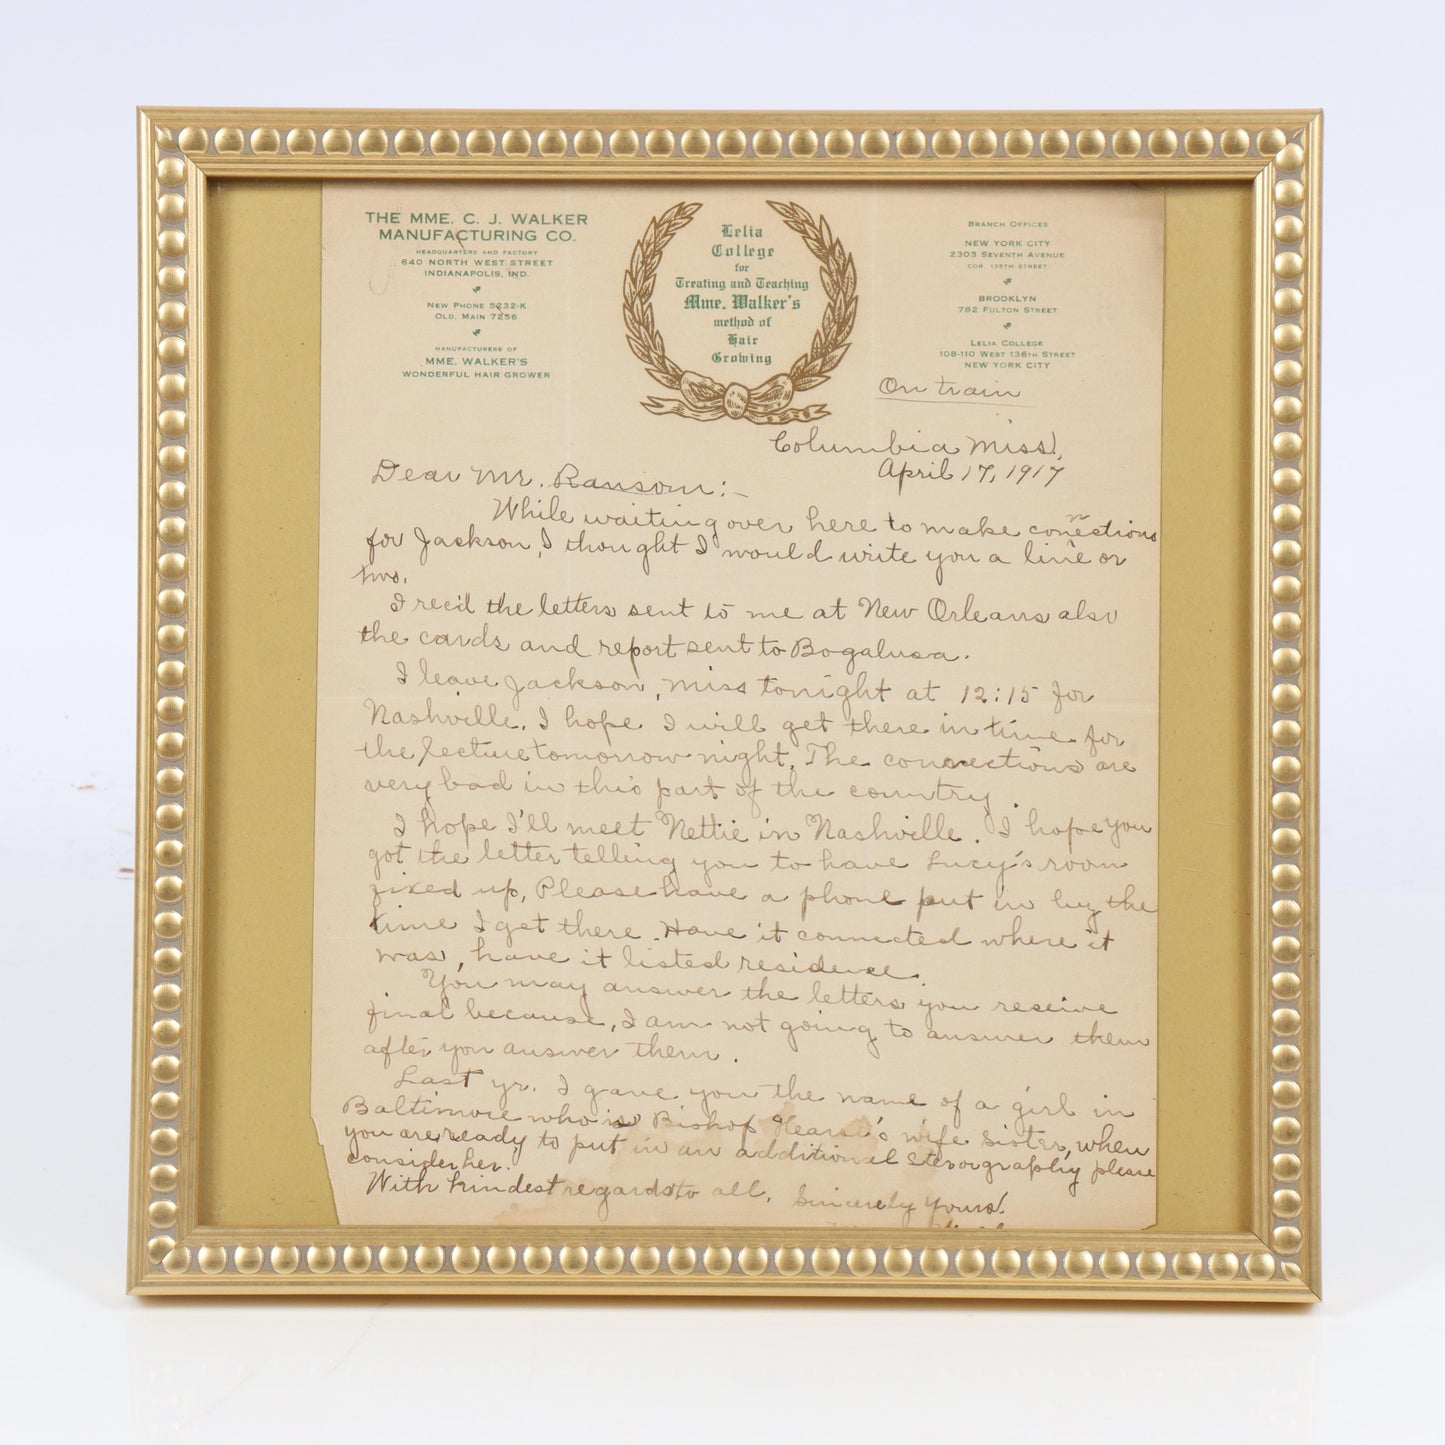 THE MME. C. J. WALKER
MANUFACTURING CO.
HEADQUARTERS AND FACTORY
640 NORTH WEST STREET
INDIANAPOLIS, IND.
NEW PHONE 5232-K
OLD, MAIN 7256
MANUFACTURERS OF
MME. WALKER'S
WONDERFUL HAIR GROWER
Lelia
College
for
Treating and Teaching
Mme. Walker's
method of
Hair
Growing
BRANCH OFFICES
NEW YORK CITY
2303 SEVENTH AVENUE
COR. 135TH STREET
BROOKLYN
782 FULTON STREET
LELIA COLLEGE
108-110 WEST 136TH STREET
NEW YORK CITY
On train
Columbia Miss,
April 17, 1917
Dear Mr. Ransom:-
While waiting over here to make connections
for Jackson, I thought I would write you a line or
two.
I rec'd the letters sent to me at New Orleans also
the cards and report sent to Bogalusa.
I leave Jackson, Miss tonight at 12:15 for
Nashville. I hope I will get there in time for
the lecture tomorrow night. The connections are
very bad in this part of the country.
I hope I'll meet Nettie in Nashville. I hope you
got the letter telling you to have Lucy's room
fixed up, Please have a phone put in by the
time I get there. Have it connected where it
was, have it listed residence.
You may answer the letters you reseive
final because, I am not going to answer them
after you answer them.
Last yr. I gave you the name of a girl in
Baltimore who is Bishop wife sister, when
you are ready to put in an additional please
consider her.
With kindest regards to all. Sincerely Yours!